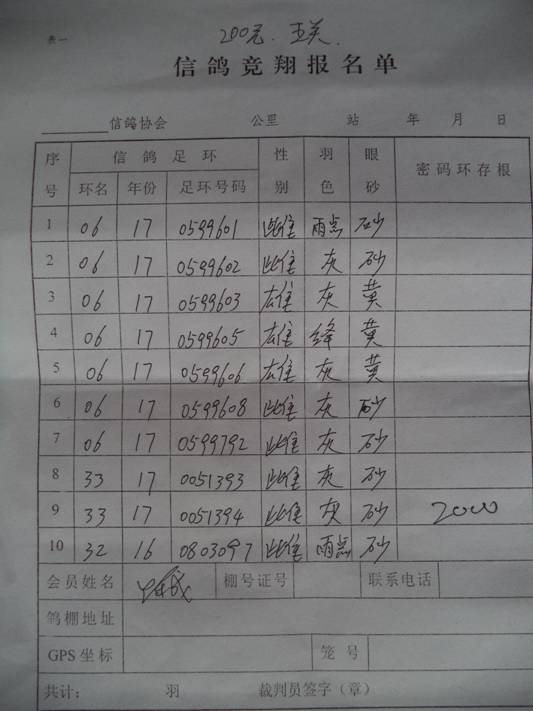 表一
200元. 五关.
信鸽竞翔报名单
信鸽协会 公里 站 年 月 日
序号 信鸽足环 性别 羽色 眼砂 密码环存根
环名 年份 足环号码
1 06 17 0599601 雌 雨点 砂
2 06 17 0599602 雌 灰 砂
3 06 17 0599603 雄 灰 黄
4 06 17 0599605 雄 绛 黄
5 06 17 0599606 雄 灰 黄
6 06 17 0599608 雌 灰 砂
7 06 17 0599792 雌 灰 砂
8 33 17 0051393 雌 灰 砂
9 33 17 0051394 雌 灰 砂 2000
10 32 16 0803097 雌 雨点 砂
会员姓名 棚号证号 联系电话
鸽棚地址
GPS坐标 笼号
共计: 羽 裁判员签字(章)